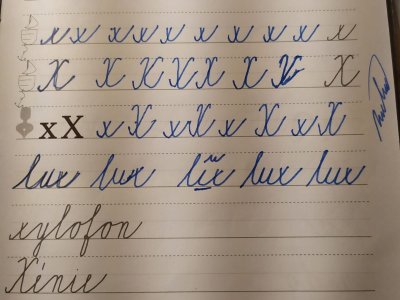 x x x x x x x x x x
X X X X X X X X
x X x X x X x X x X
lux lux lux lux
xylofon
Xénie